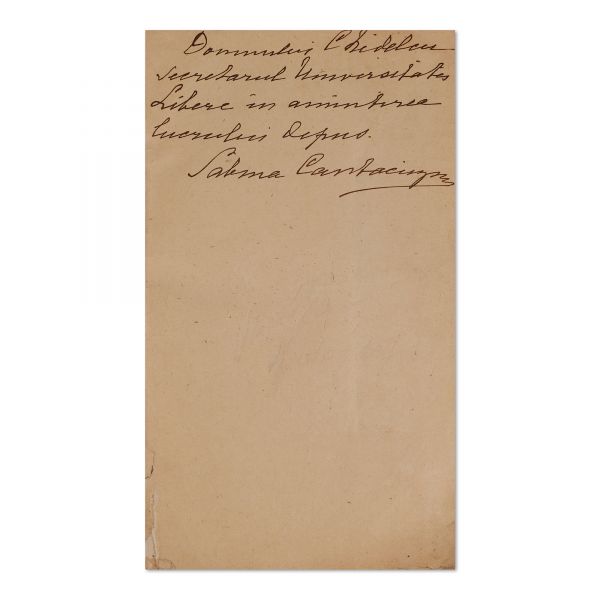 Domnului Chidelcu
Secretarul Universitatei
Libere in amintirea
lucrului depus.
Sabina Cantacuzin